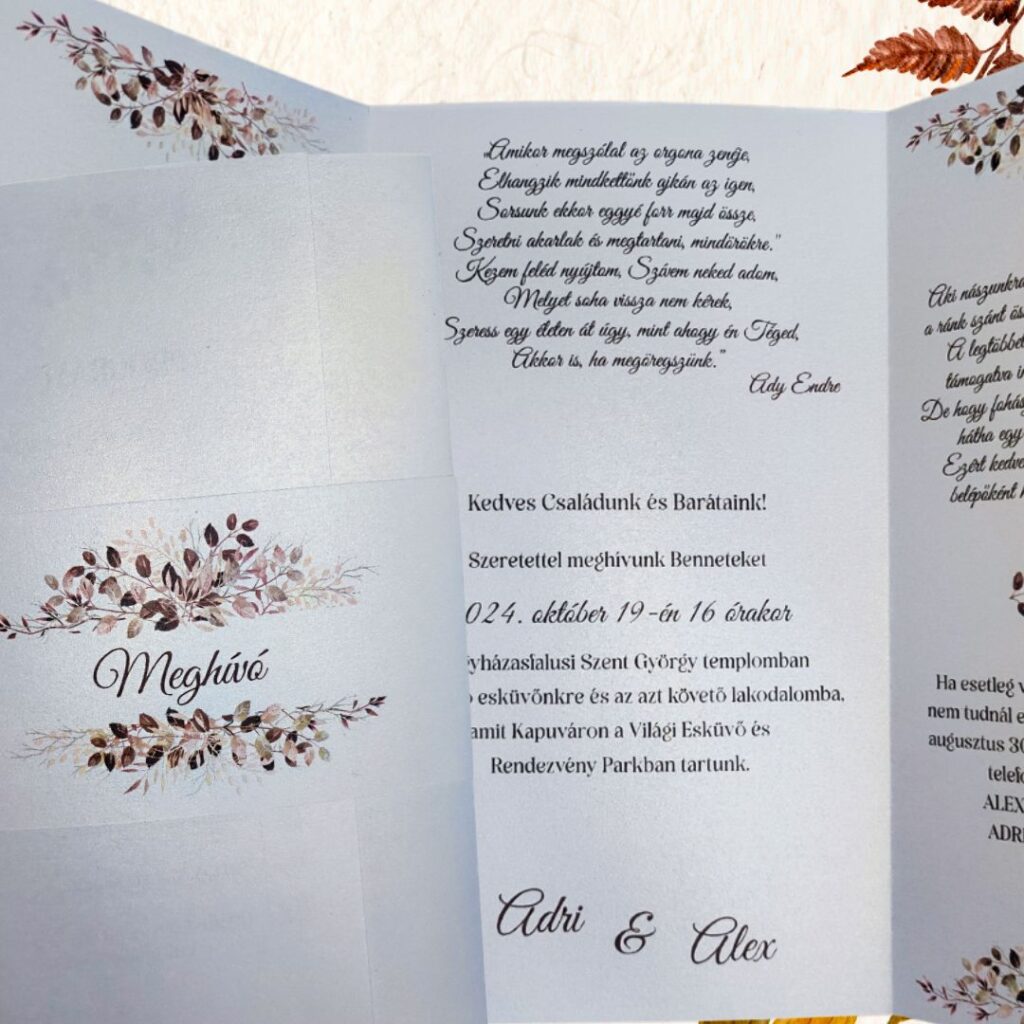 Meghívó
„Amikor megszólal az orgona zenéje,
Elhangzik mindkettőnk ajkán az igen,
Sorsunk ekkor eggyé forr majd össze,
Szeretni akarlak és megtartani, mindörökre."
Kezem feléd nyújtom, Szívem neked adom,
Melyet soha vissza nem kérek,
Szeress egy életen át úgy, mint ahogy én Téged,
Akkor is, ha megöregszünk."
Ady Endre
Kedves Családunk és Barátaink!
Szeretettel meghívunk Benneteket
024. október 19-én 16 órakor
yházasfalusi Szent György templomban
esküvőnkre és az azt követő lakodalomba,
amit Kapuváron a Világi Esküvő és
Rendezvény Parkban tartunk.
Adri & Alex
Aki nászunkra
a ránk szánt ös
A legtöbbet
támogatva
De hogy fohás
hátha egy
Ezért kedve
belépőként
Ha esetleg
nem tudnál e
augusztus 30
telefo
ALEX
ADRI